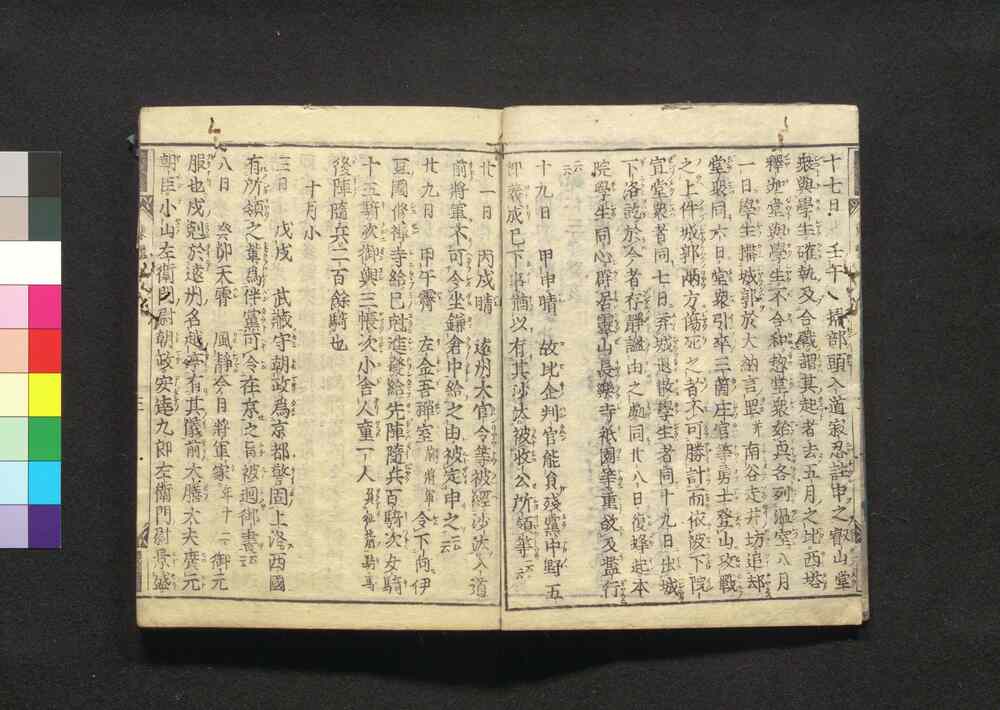 十七日 壬午 掃部頭入道寂忍註申之叡山堂
衆與學生確執及合戰謂其起者去五月之比西塔
釋迦堂衆與學生不令和愁堂衆始與各列温室八月
一日學生搆城郭於大納言罡并南谷走井坊追却
堂衆同六日堂衆引率三箇庄官等勇士登山攻戰
之上件城郭兩方傷死之者不可勝計而依被下院
宣堂衆者同七日弃城退散學生者同十九日出城
下洛訖於今者存靜謐由之處同廾八日復蜂起本
院學生同心群居靈山長樂寺祇園等重欲及濫行
云云
十九日 甲申晴 故比企判官能員殘黨中野五
郎義成已下 以有其沙汰被收公所領等云云
廾一日 丙戌晴 遠州大官令等被經沙汰入道
前將軍不可令坐鎌倉中給之由被定申之云云
廾九日 甲午霽 左金吾禪室前將軍令下向伊
豆國修禪寺給巳尅進發給先陣隨兵百騎次女騎
十五騎次御輿三帳次小舎人童一人
後陣隨兵二百餘騎也
十月小
三日 戊戌 武藏守朝政爲京都警固上洛西國
有所領之輩爲伴黨可令在京之旨被廻御書云云
八日 癸卯天霽 風靜今日將軍家年十二御元
服也戌尅於遠州名越亭有其儀前大膳大夫廣元
朝臣小山左衛門尉朝政安達九郎左衛門尉景盛